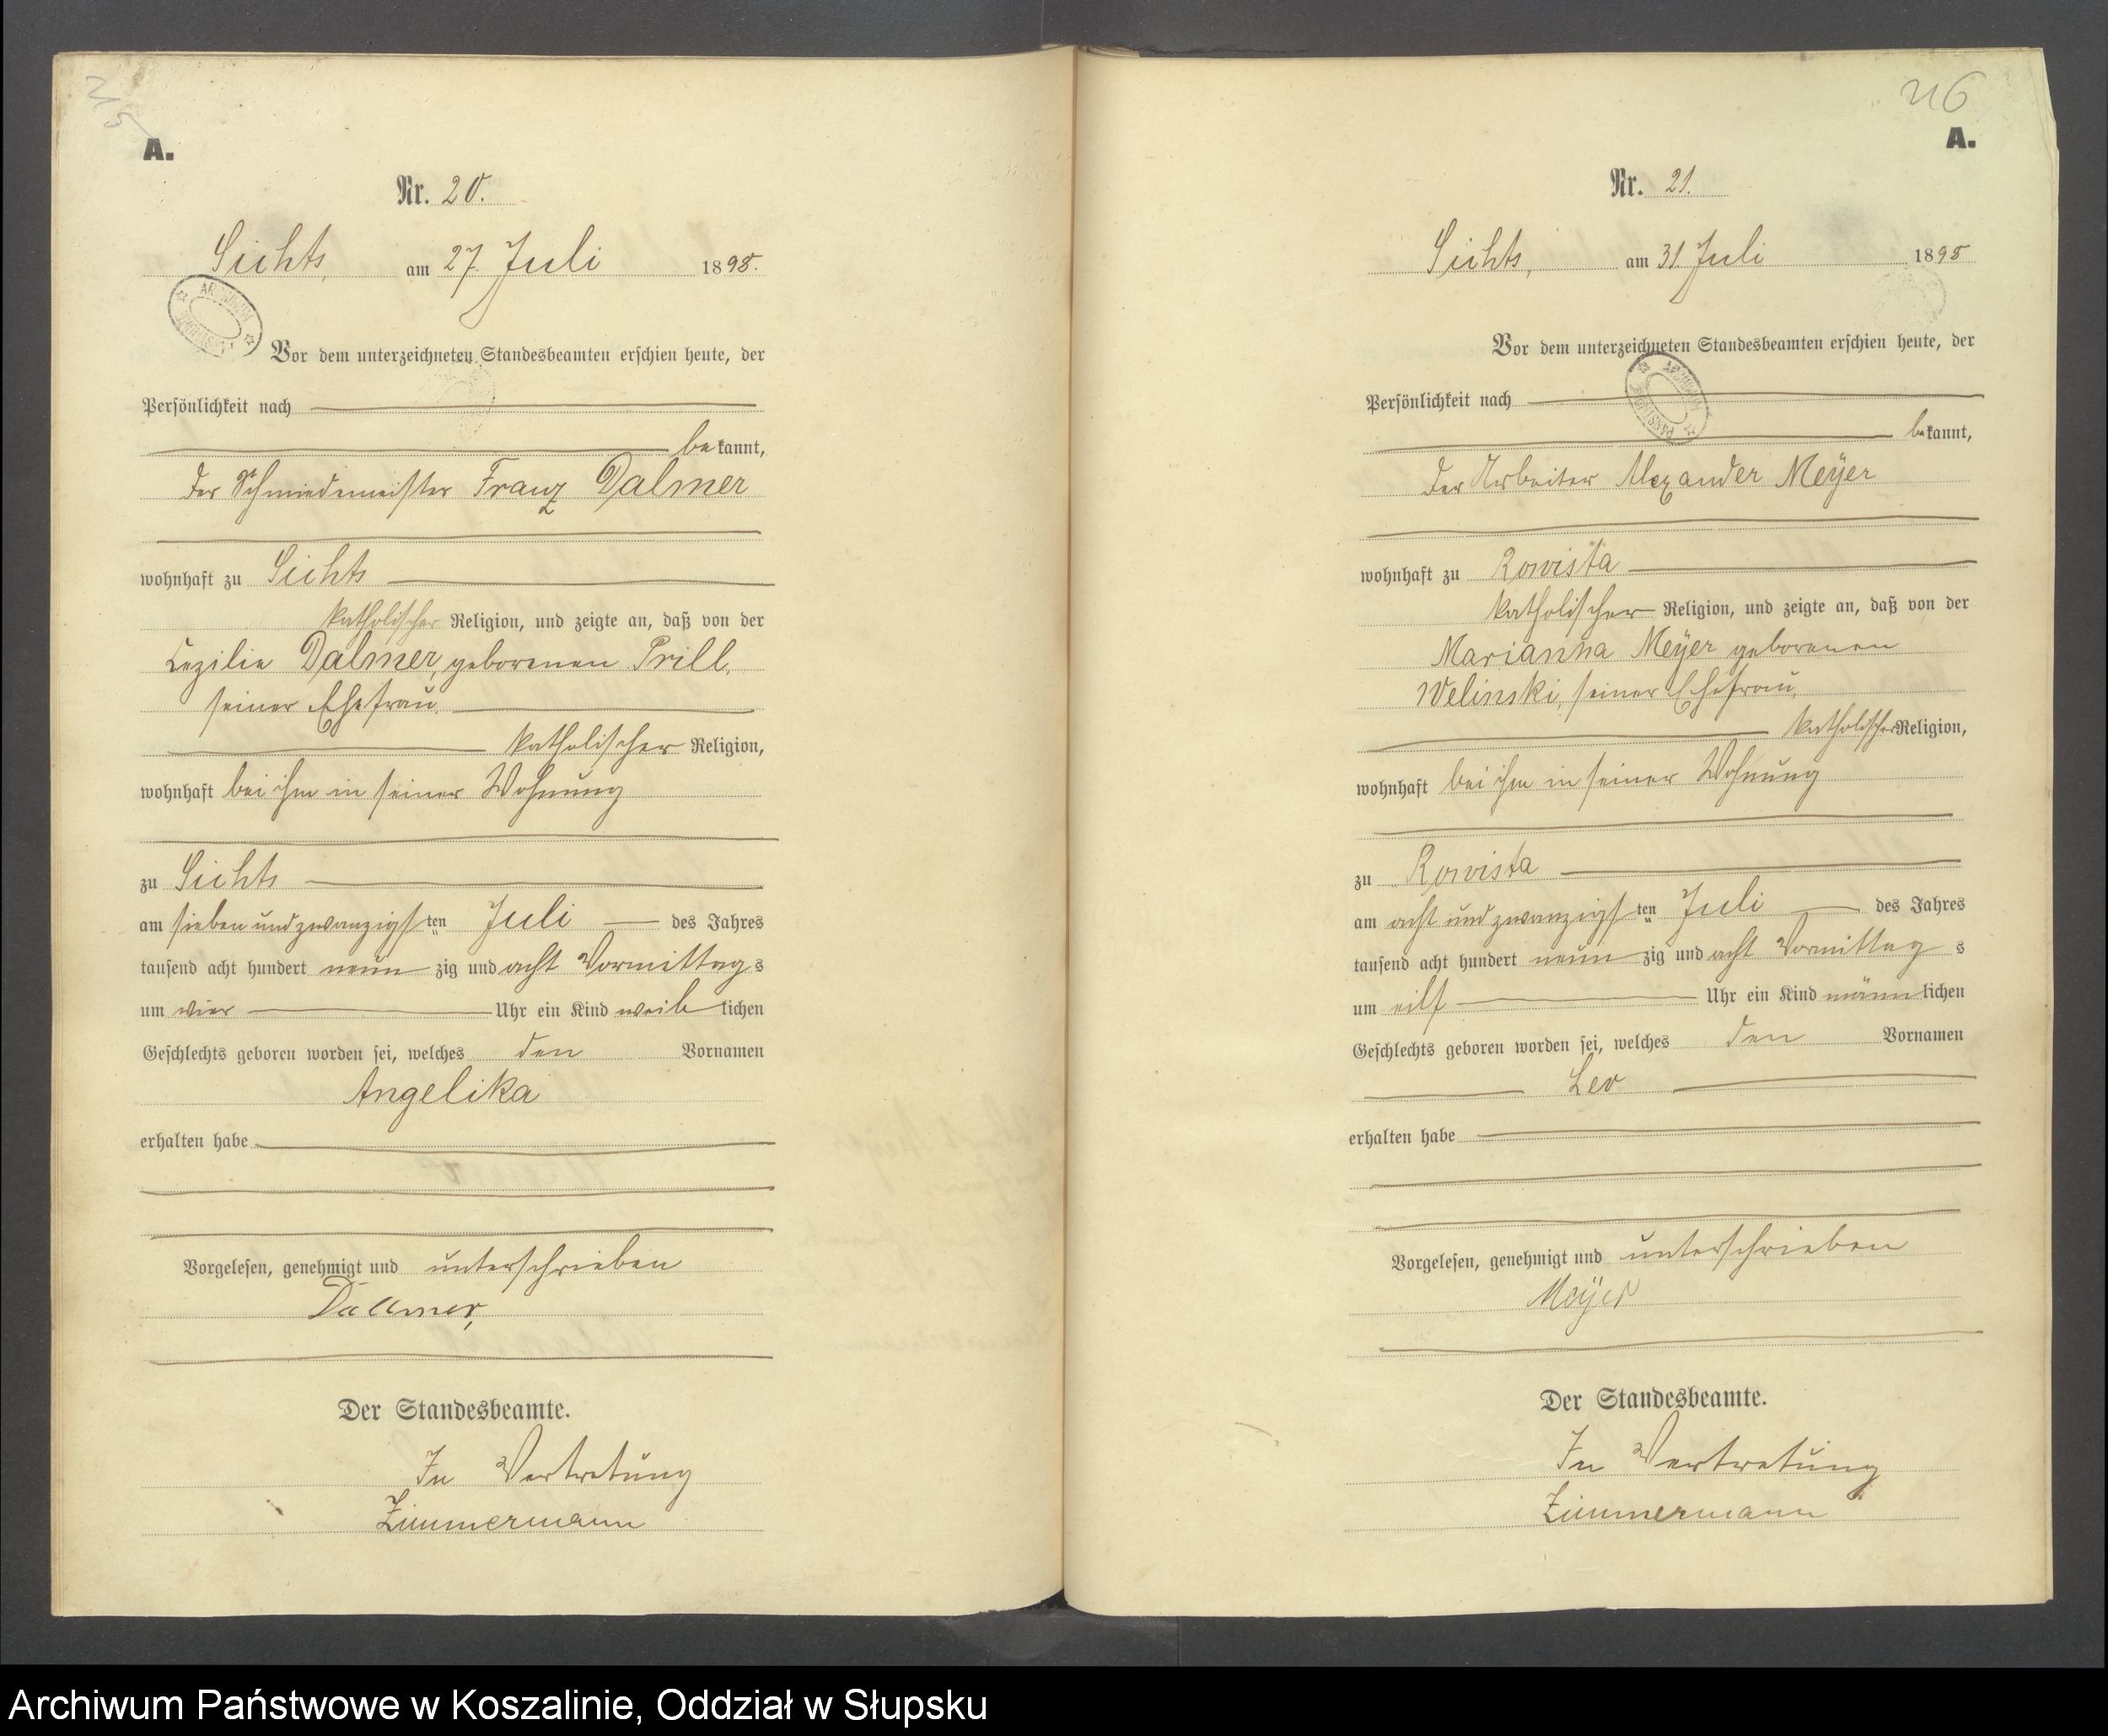 215
A.
Nr. 20.
Sichts, am 27. Juli 1898.
Vor dem unterzeichneten Standesbeamten erschien heute, der
Persönlichkeit nach
bekannt,
der Schmiedemeister Franz Dalmer
wohnhaft zu Sichts
katholischer Religion, und zeigte an, daß von der
Cezilie Dalmer, geborenen Prill,
seiner Ehefrau,
katholischer Religion,
wohnhaft bei ihm in seiner Wohnung
zu Sichts
am siebenundzwanzigsten Juli des Jahres
tausend acht hundert neunzig und acht Vormittags
um vier Uhr ein Kind weiblichen
Geschlechts geboren worden sei, welches den Vornamen
Angelika
erhalten habe
Vorgelesen, genehmigt und unterschrieben
Dallmer,
Der Standesbeamte.
In Vertretung
Zimmermann
216
A.
Nr. 21.
Sichts, am 31. Juli 1898
Vor dem unterzeichneten Standesbeamten erschien heute, der
Persönlichkeit nach
bekannt,
der Arbeiter Alexander Meÿer
wohnhaft zu Rowista
katholischer Religion, und zeigte an, daß von der
Marianna Meÿer geborenen
Welinski, seiner Ehefrau,
katholischer Religion,
wohnhaft bei ihm in seiner Wohnung
zu Rowista
am acht und zwanzigsten Juli des Jahres
tausend acht hundert neunzig und acht Vormittags
um eilf Uhr ein Kind männlichen
Geschlechts geboren worden sei, welches den Vornamen
Leo
erhalten habe
Vorgelesen, genehmigt und unterschrieben
Meÿer
Der Standesbeamte.
In Vertretung
Zimmermann
Archiwum Państwowe w Koszalinie, Oddział w Słupsku